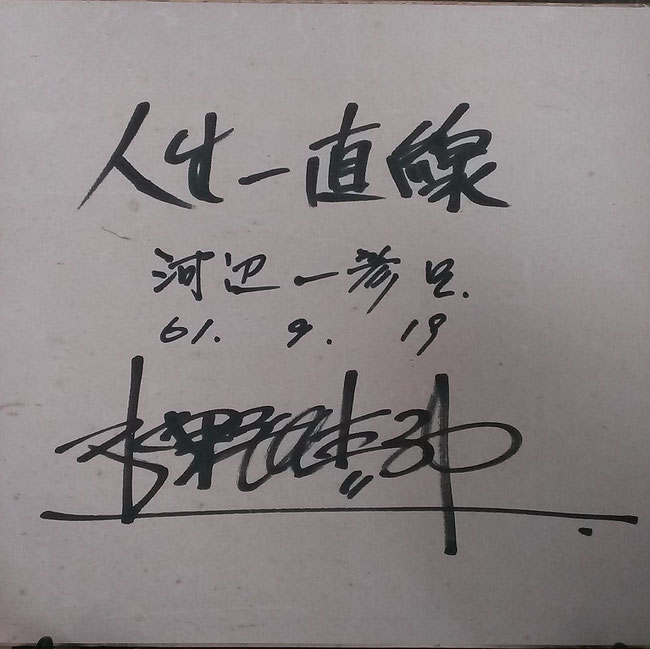 人生一直線
河辺一彦兄.
61. 9. 19